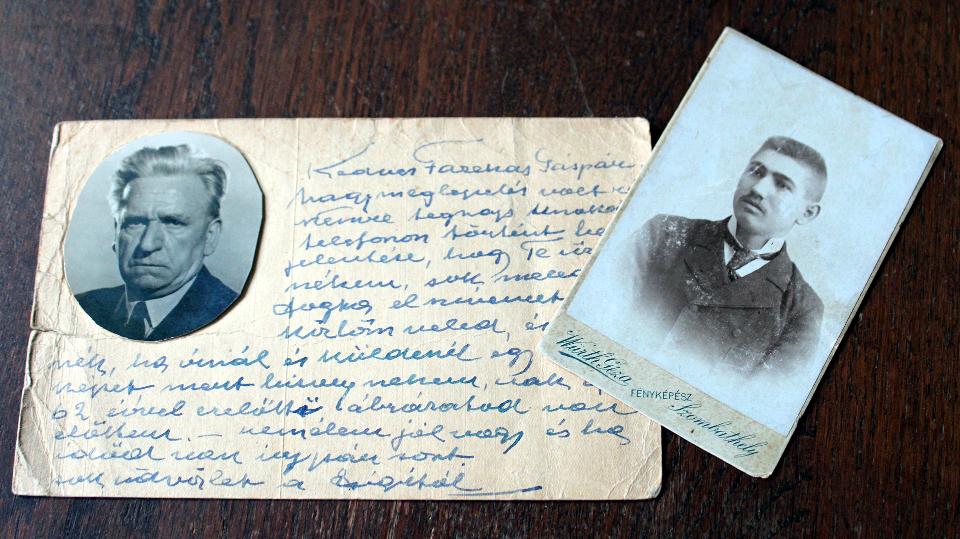 Kedves Fazekas Gáspár
nagy meglepetés volt
tegnap unoka
telefonon történt
jelentése, hogy Te
nékem, sok meleg
fogta el szívemet
közlöm veled, és
nék, ha írnál és küldenél egy
képet mert bizony nekem, csak
62 évvel ezelőtti ábrázatod van
előttem. – remélem jól vagy és ha
időd van irj pár sort
sok üdvözlet a Gigitől
Wurth Géza
FÉNYKÉPÉSZ
Szombathely